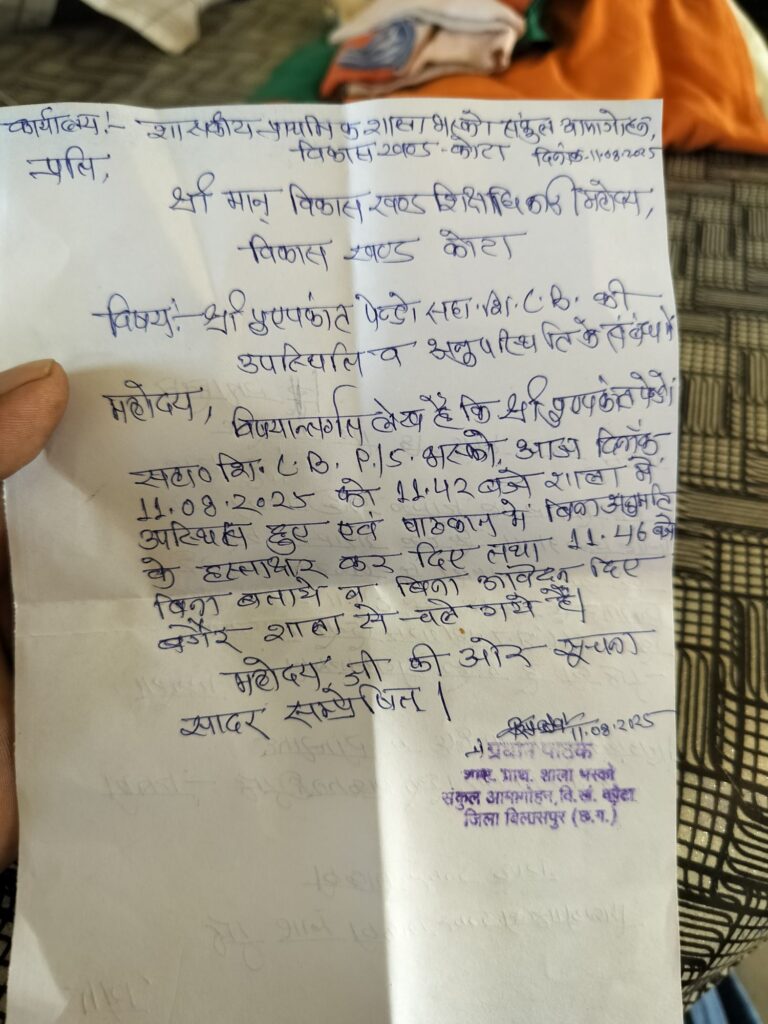 कार्यालय:- शासकीय प्राथमिक शाला भस्को संकुल आमागोहन,
विकास खण्ड - कोटा दिनांक-11.08.2025
प्रति,
श्री मान् विकास खण्ड शिक्षाधिकारी महोदय,
विकास खण्ड कोटा
विषय:- श्री पुष्पकांत पेन्द्रो सहा. शि. L.B. की
उपस्थिति व अनुपस्थिति के संबंध में
महोदय,
विषयान्तर्गत लेख है कि श्री पुष्पकांत
सहा० शि. L.B. P/S. भस्को, आज दिनाँक
11.08.2025 को 11.42 बजे शाला में
उपस्थित हुए एवं पाठकान में बिना अनुमति
के हस्ताक्षर कर दिए तथा 11.46 बजे
बिना बताये व बिना आवेदन दिए
बगैर शाला से चले गये है।
महोदय जी की ओर सूचना
सादर सम्प्रेषित।
11.08.2025
प्रधान पाठक
शास. प्राथ. शाला भस्को
संकुल आमागोहन, वि. खं. कोटा
जिला बिलासपुर (छ.ग.)